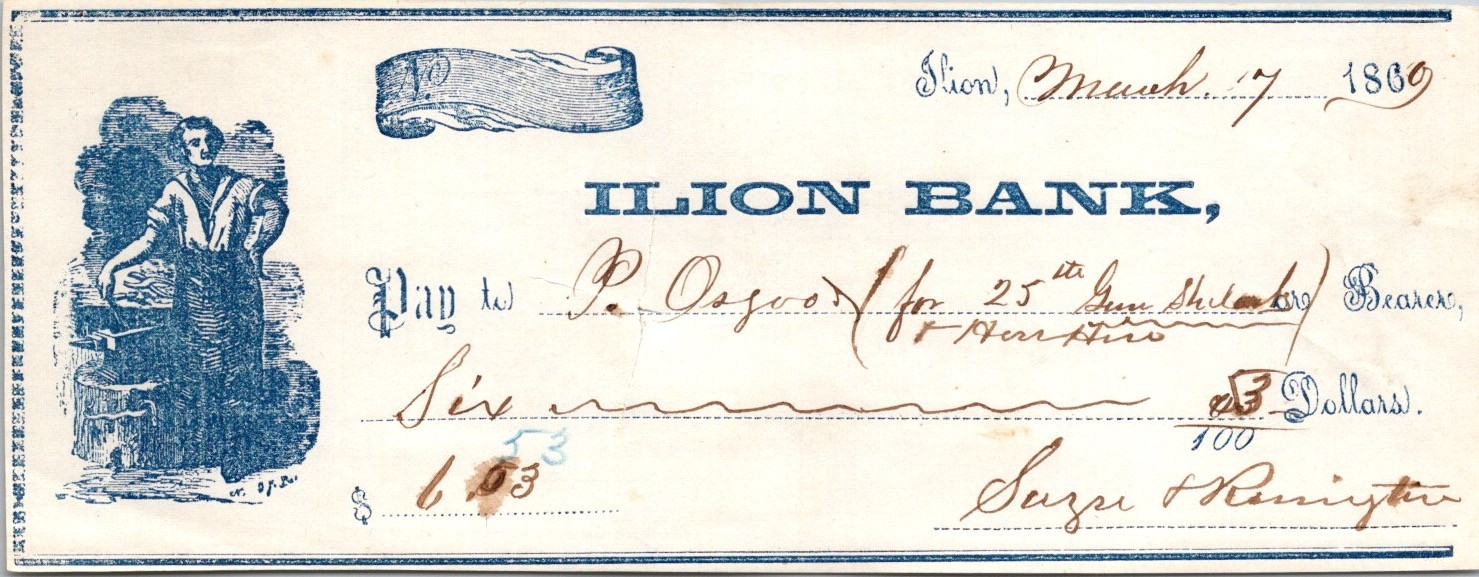 No
Ilion, March 17 1869
ILION BANK,
Pay to P. Osgood (for 25th Gun or) Bearer,
Six 53 Dollars.
100
53
$ 6.53
& Remington